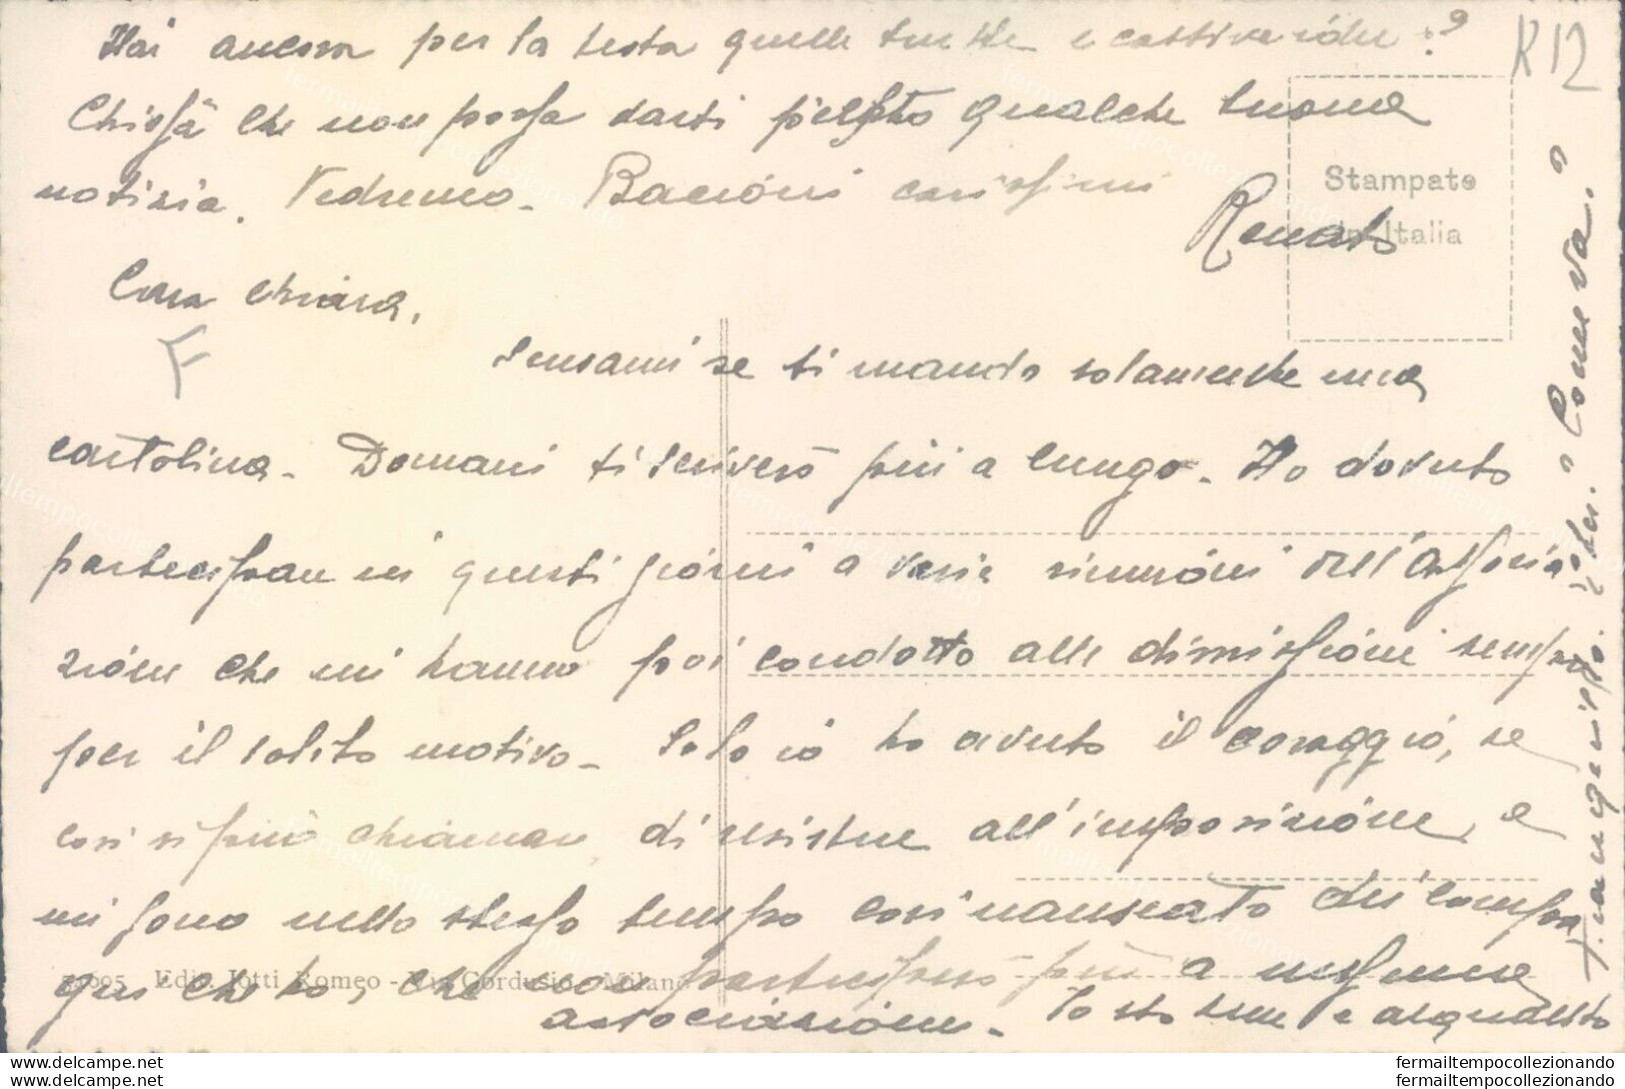 Hai ancora per la testa quelle brutte e cattive idee?
Chissà che non possa darti presto qualche buona
notizia. Vedremo - Bacioni carissimi
Renato
K12
Stampato
in Italia
Cara Chiara,
Scusami se ti mando solamente una
cartolina - Domani ti scriverò più a lungo - Ho dovuto
partecipare in questi giorni a varie riunioni dell'associa
zione che mi hanno poi condotto alle dimissioni sempre
per il solito motivo - Solo io ho avuto il coraggio, se
così si può chiamare, di resistere all'imposizione, e
mi sono nello stesso tempo così nauseato dei compa
gni che ho, che non parteciperò più a nessuna
associazione - Io sto bene e
Ediz. Jotti Romeo - Via Cordusio - Milano
fermailtempocollezionando
fermailtempocollezionando